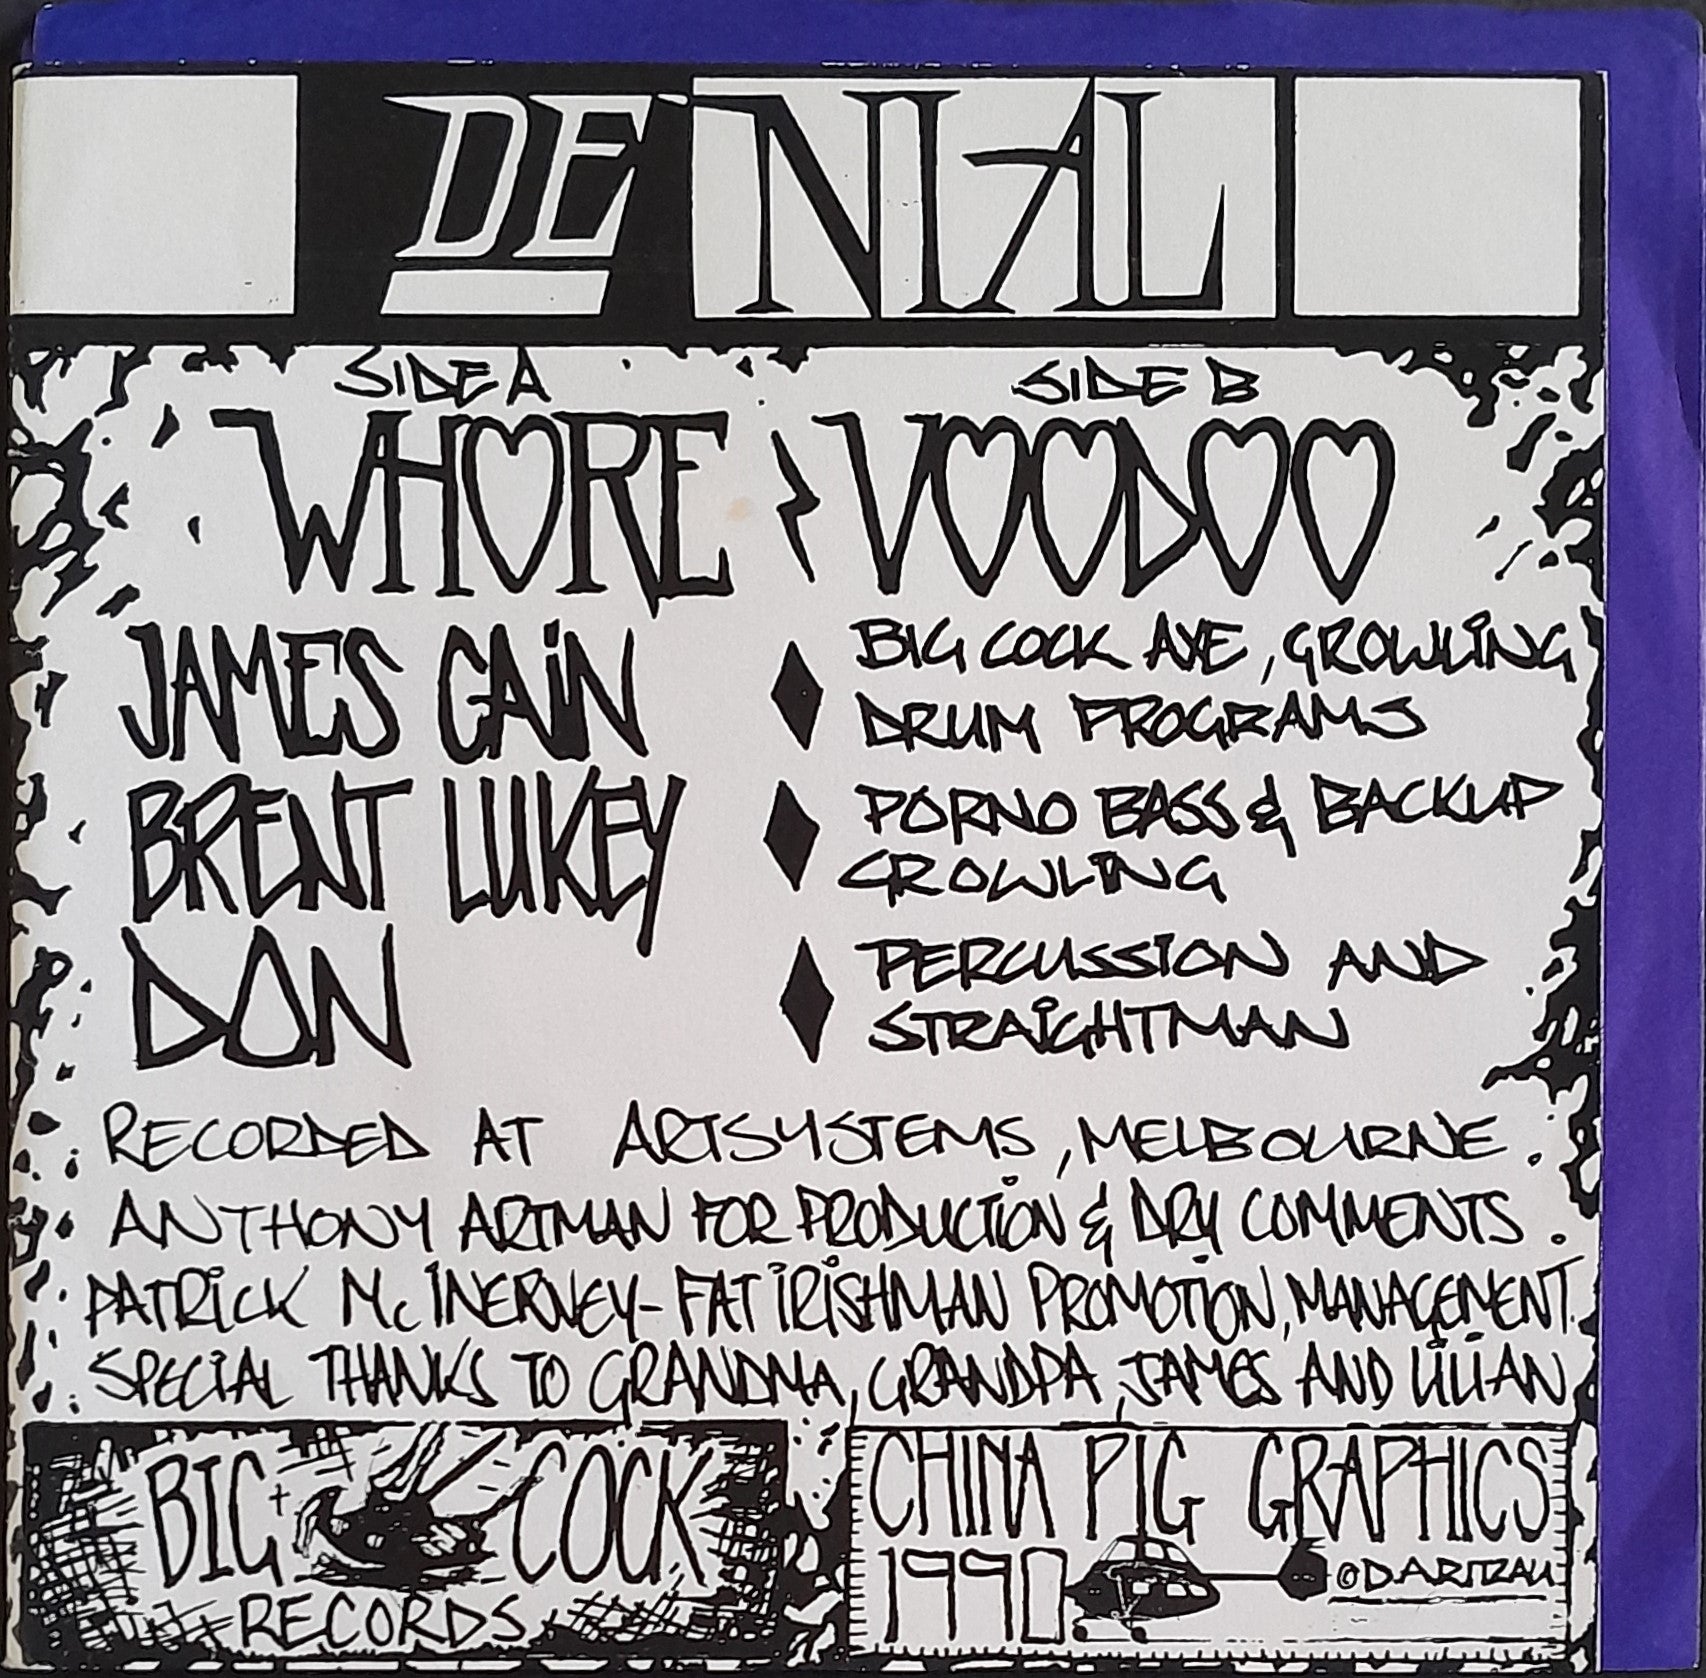 DE'NIAL
SIDE A
SIDE B
WHORE
VOODOO
JAMES CAIN
BIG COCK AXE, GROWLING
DRUM PROGRAMS
BRENT LUKEY
PORNO BASS & BACKUP
GROWLING
DON
PERCUSSION AND
STRAIGHTMAN
RECORDED AT ARTSYSTEMS, MELBOURNE.
ANTHONY ARTMAN FOR PRODUCTION & DRY COMMENTS.
PATRICK Mc INERNEY - FAT IRISHMAN PROMOTION, MANAGEMENT.
SPECIAL THANKS TO GRANDMA, GRANDPA, JAMES AND LILIAN
BIG COCK
RECORDS
CHINA PIG GRAPHICS
1990